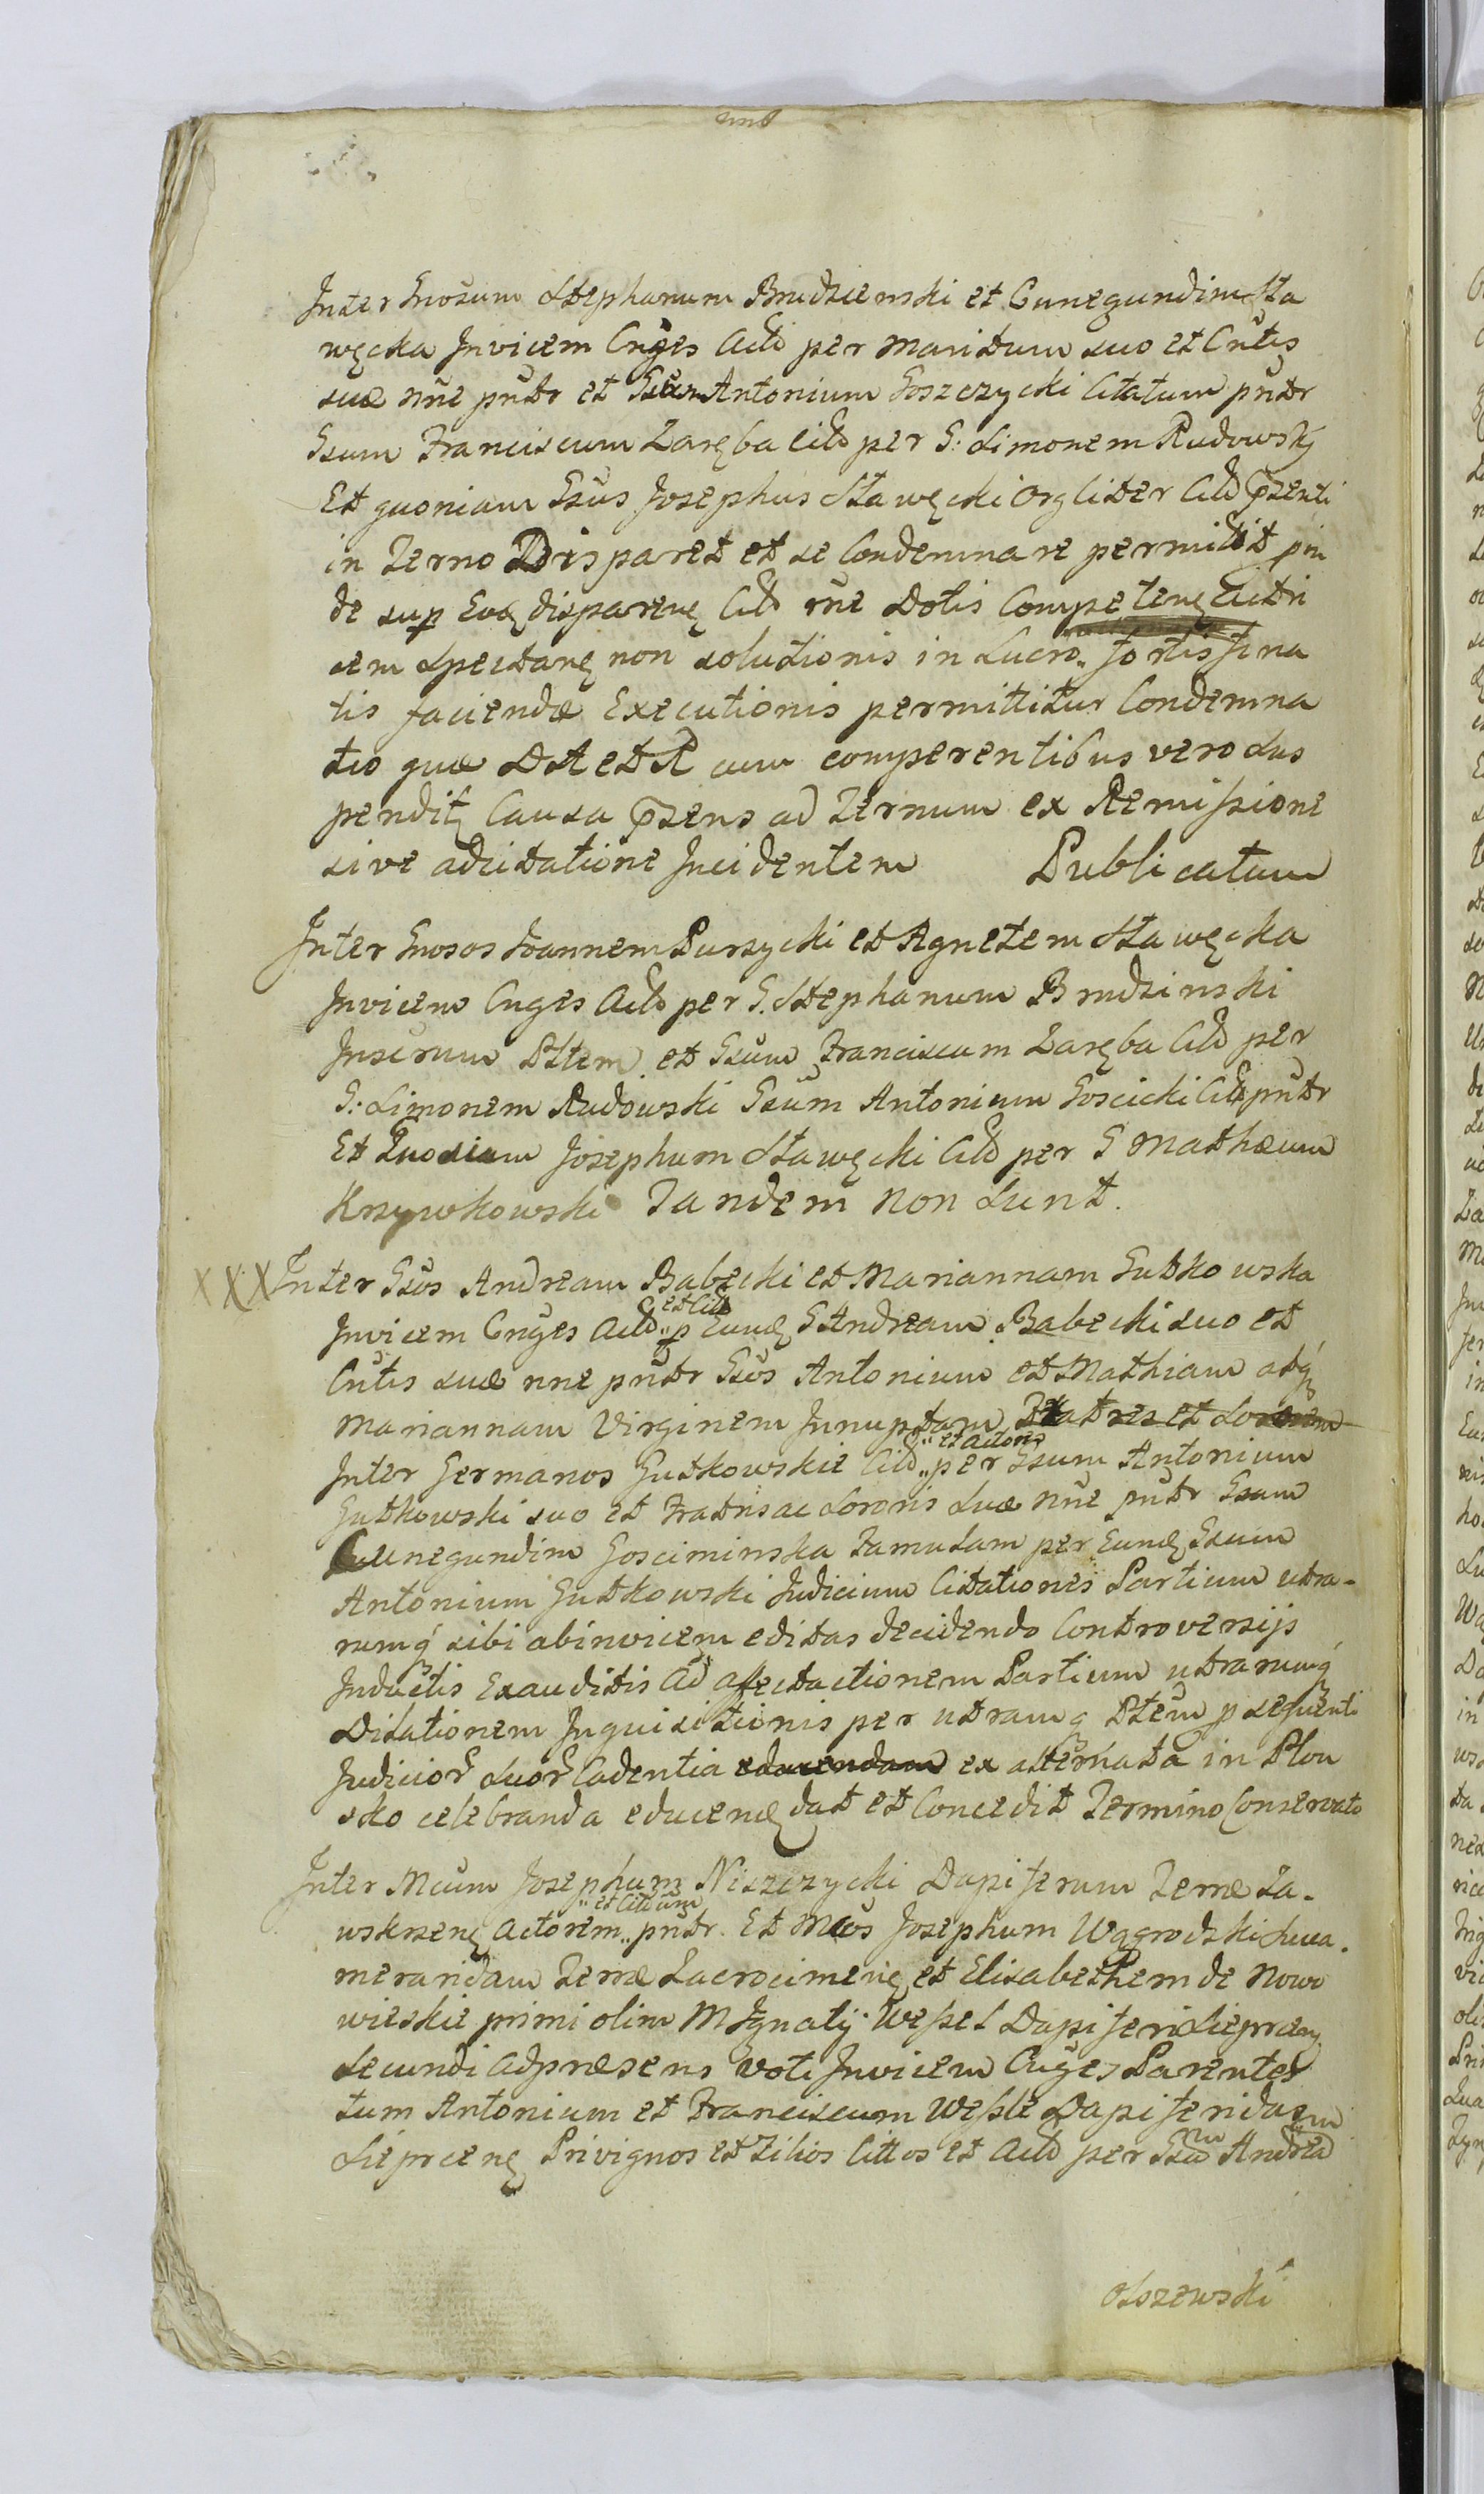 Inter Gnosum Stephanum Brudzienski et Cunegundim Sta
węcka Invicem Cnges Actt per Maritum suo et Cntis
suæ nne pndr et Gsum Antonium Goszczycki Citatum pndr
Gsum Franciscum Zaręba Citt per G: Simonem Rudowskj
Et quoniam Gsus Josephus Stawęcki Orgliter Citt psenti
in Terno Disparet et se Condemnare permittit pin
de sup Eoq disparenę Citt rne Dotis Competenę Actri
cem spectanę non solutionis in Lucro
tis faciendæ Executionis permittitur Condemna
tio quæ DA et R cum comperentibus vero Sus
pendit Causa psens ad Ternum ex Remissione
sive adcitatione Incidentem Publicatum
Inter Gnosos Joannem Purzycki et Agnetem Stawęcka
Invicem Cnges Actt per G. Stephanum Brudzinski
Pttem et Gsum Franciscum Zaręba Citt per
G: Simonem Rudowski Gsum Antonium Goscicki Citt pndr
Et Josephum Stawęcki Citt per G Mathæum
Krzywkowski Tandem Non Sunt.
XXX Inter Gsos Andream Babecki et Mariannam Gutkowska
Invicem Cnges Actt „et Citt„ p Eund G Andream Babecki suo et
Cntis suæ nne pndr Gsos Antonium et Mathiam atq
Mariannam Virginem Innuptam Fratres et Sororem
Inter Germanos Gutkowskie Citt „et Actores„ per Gsum Antonium
Gutkowski suo et Fratris ac Sororis Suæ nne pndr Gsam
Cunegundim Gosciminska Famulam per Eund Gsum
Antonium Gutkowski Judicium Citationes Partium utra-
rumq sibi abinvicem editas decidendo Controversijs
Inductis Exauditis ad affectactionem Partium utrarumq
Dilationem Inquisitionis per utramq Ptem p sequenti
Judicior Suor Cadentia educendam ex alternata in Plon
sko celebranda educend dat et Concedit Termino Conservato
Inter Mcum Josephum Niszczycki Dapiferum Terræ Za-
wskrzenę Actorem „et Citatum„ pndr. Et Mcos Josephum Wągrodzki
Terræ Zacrocimenę et Elisabethem de Nowo
wieskie primi olim M Ignatij Wessel Dapiferi Sieprcen
Secundi adpræsens Voti Invicem Cnges Parentes
tum Antonium et Franciscum Wessle
Sieprcenę Privignos et Filios Cittos et Actt per Gsum Andrea
Olszewski